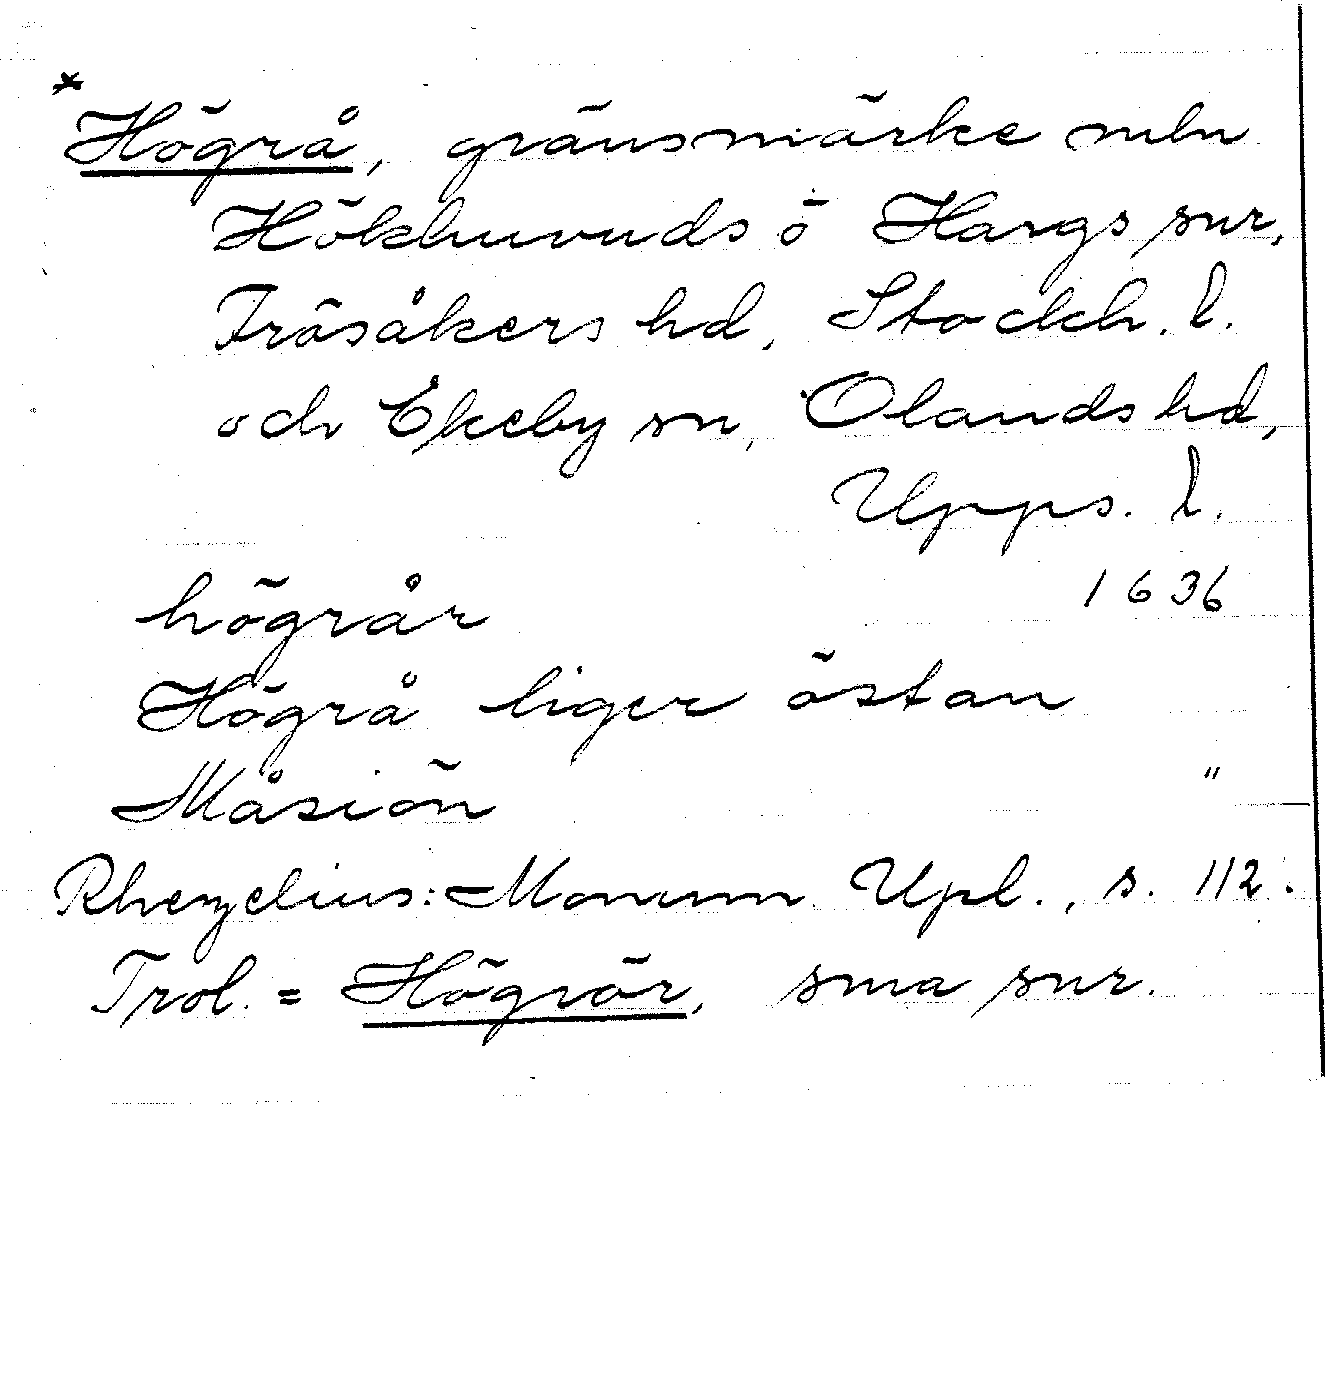 *
Högrå, gränsmärke mln
Hökhuvuds ö Hargs snr,
Frösåkers hd, Stockh. l.
och Ekeby sn, Olands hd,
Upps. l.
högrår 1636
Högrå liger östan
Måsiön "
Rhezelius: Monum Upl., s. 112.
Trol. = Högrör, sma snr.